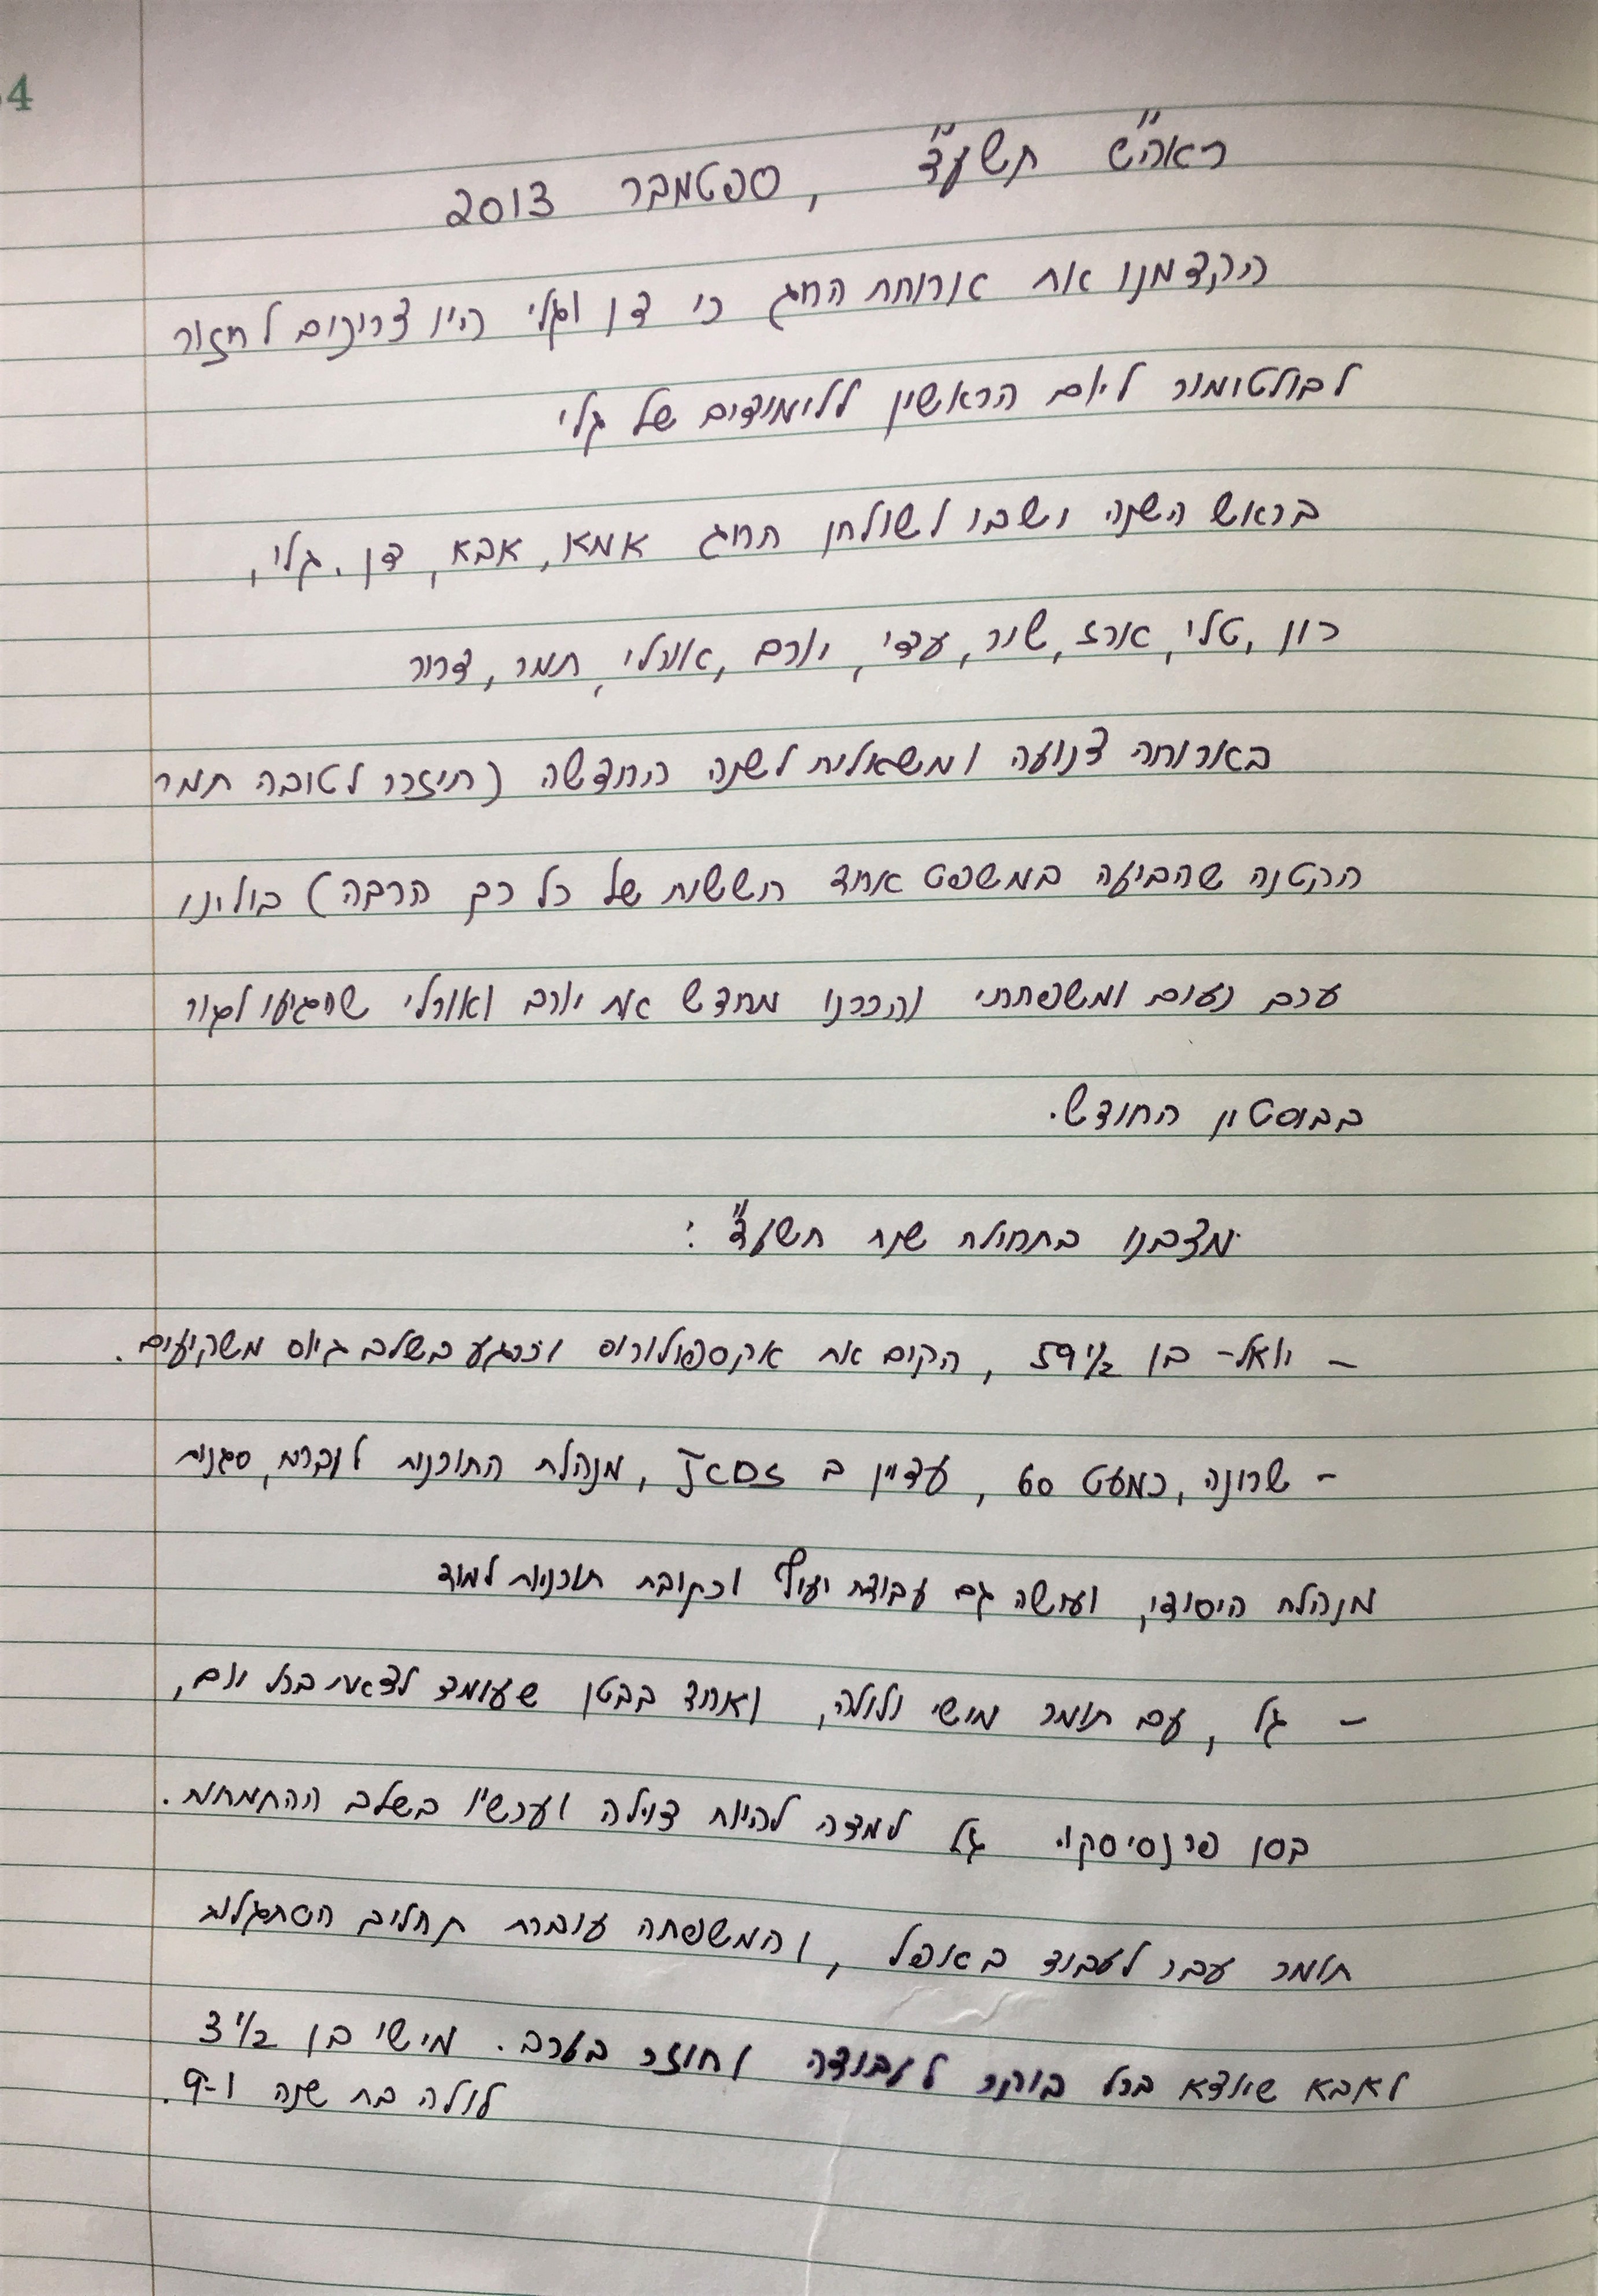 64
ראה״ש תשע״ד, ספטמבר 2013
הקדמנו את ארוחת החג כי דן וגלי היו צריכים לחזור
לבולטימור ליום הראשון ללימודים של גלי
בראש השנה ישבו לשולחן החג אמא, אבא, דן, גלי,
רון, טלי, ארז, שיר, עדי, יורם, אורלי, תמר, דרור
בארוחה צנועה ומשאלות לשנה החדשה (תיזכר לטובה תמר
הקטנה שהביעה במשפט אחד חששות של כל כך הרבה) בילינו
ערב נעים ומשפחתי והכרנו מחדש את יורם ואורלי שהגיעו לגור
בבוסטון החודש.
מצבנו בתחילת שנת תשע״ד:
– יואל – בן 59 1/2, הקים את אקספלורופ וכרגע בשלב גיוס משקיעים.
– שרונה, כמעט 60, עדיין ב JCDS, מנהלת התוכנית לעברית, סגנית
מנהלת היסודי, ועושה גם עבודת יעוץ וכתיבת תוכניות למוד
– גל, עם תומר מישי ולולה, ואחד בבטן שעומד לצאת בכל יום,
בסן פרנסיסקו. גל למדה להיות דולה ועכשיו בשלב ההתמחות.
תומר עבר לעבוד באפל, והמשפחה עוברת תהליך הסתגלות
לאבא שיוצא בכל בוקר לעבודה וחוזר בערב. מישי בן 3 1/2
לולה בת שנה ו-9.